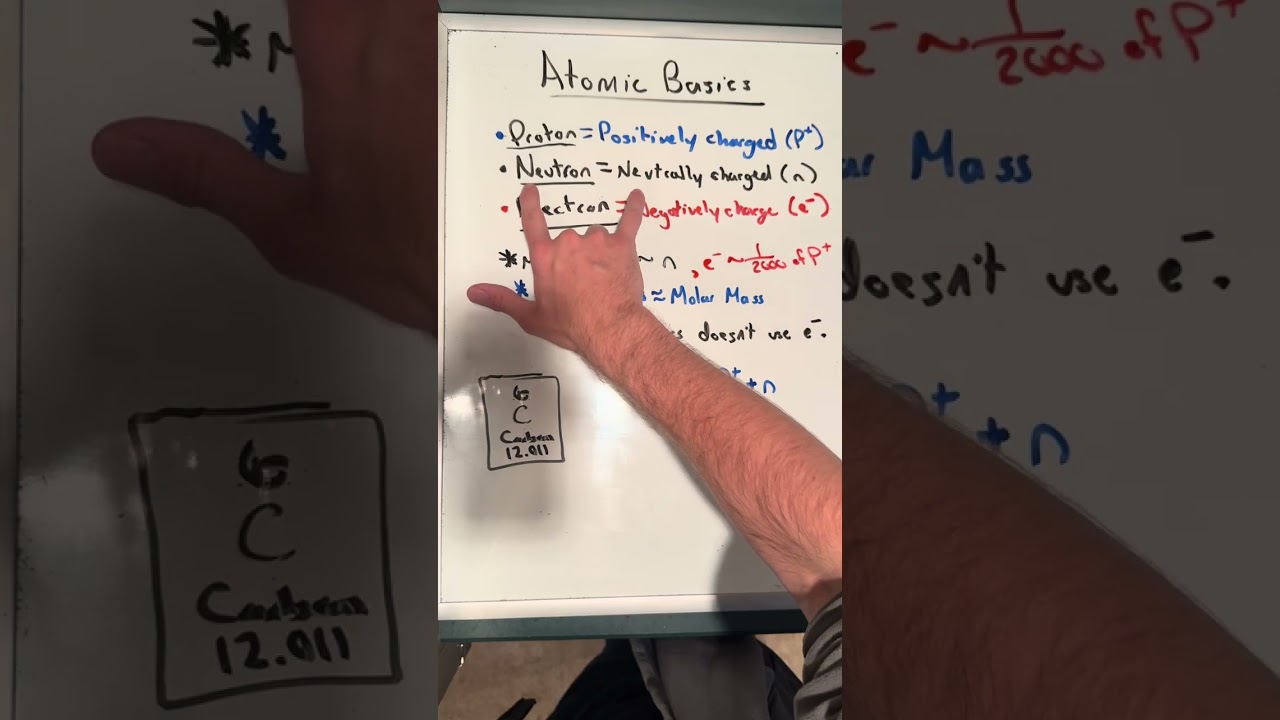 Atomic Basics
• Proton = Positively charged (P⁺)
• Neutron = Neutrally charged (n)
• Electron = Negatively charge (e⁻)
* ~ n , e⁻ ~ 1/2000 of P⁺
* ≈ Molar Mass
doesn't use e⁻.
+ n
6
C
Carbon
12.011